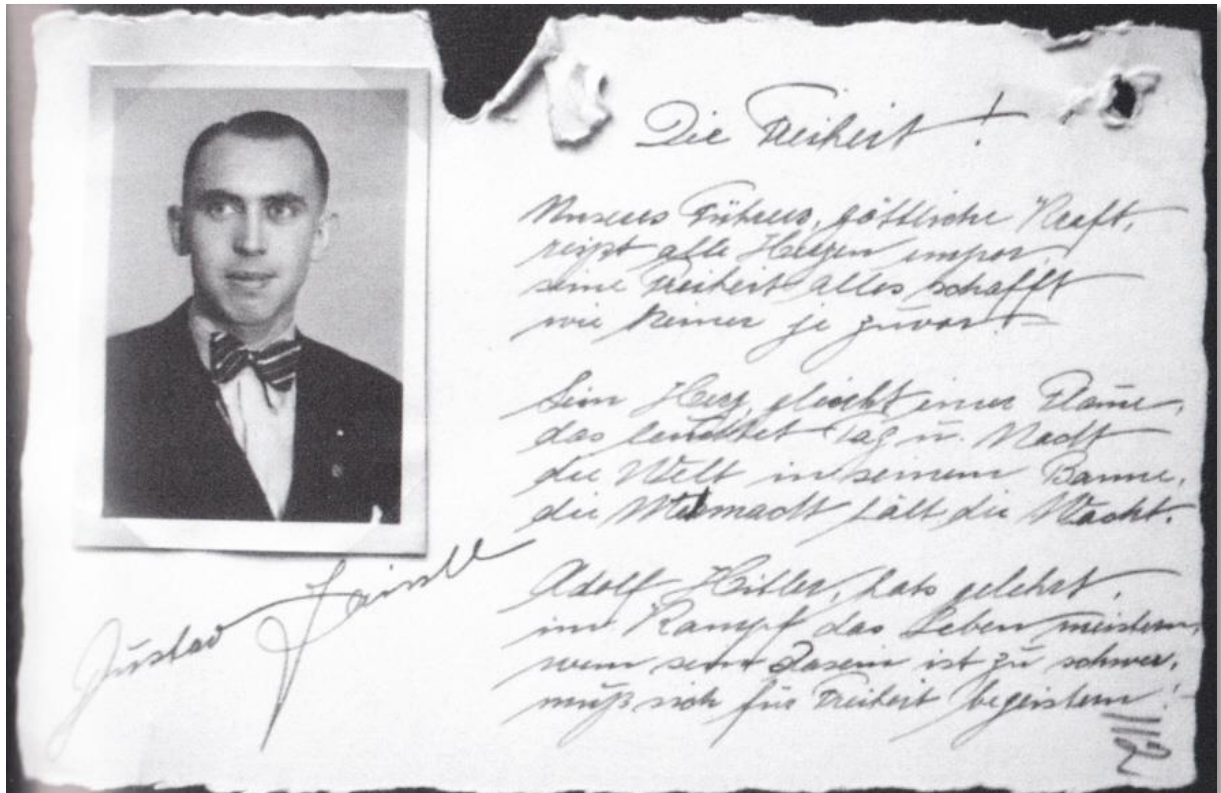 Die Freiheit!
Unseres Führers, göttliche Kraft,
reißt alle Herzen empor,
seine Freiheit alles schafft
wie keiner je zuvor!
Sein Herz, gleicht einer Flame,
das leuchtet Tag u. Nacht
die Welt in seinem Banne,
die Wehrmacht hält die Wacht.
Adolf Hitler, hats gelehrt,
im Kampf das Leben meistern,
wem sein Dasein ist zu schwer,
muß sich für Freiheit begeistern!
Gustav